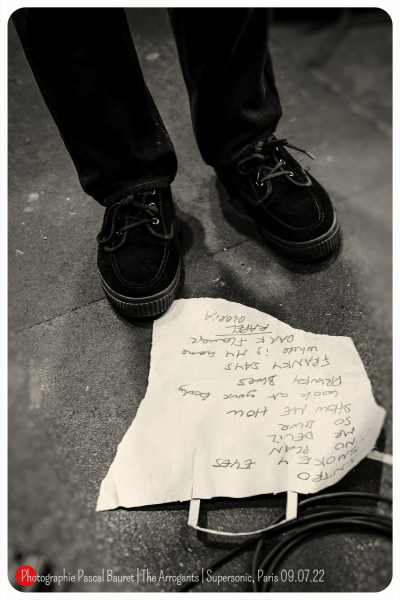 INTRO
SMOKEY EYES
NO PLAN
MR DEVIL
SO
SHOW ME HOW
Look at your Body
Blues
FRANKY SAYS
Where is My name
DARK Flower
RAPEL
Gloria
Photographie Pascal Bauret | The Arrogants | Supersonic, Paris 09.07.22